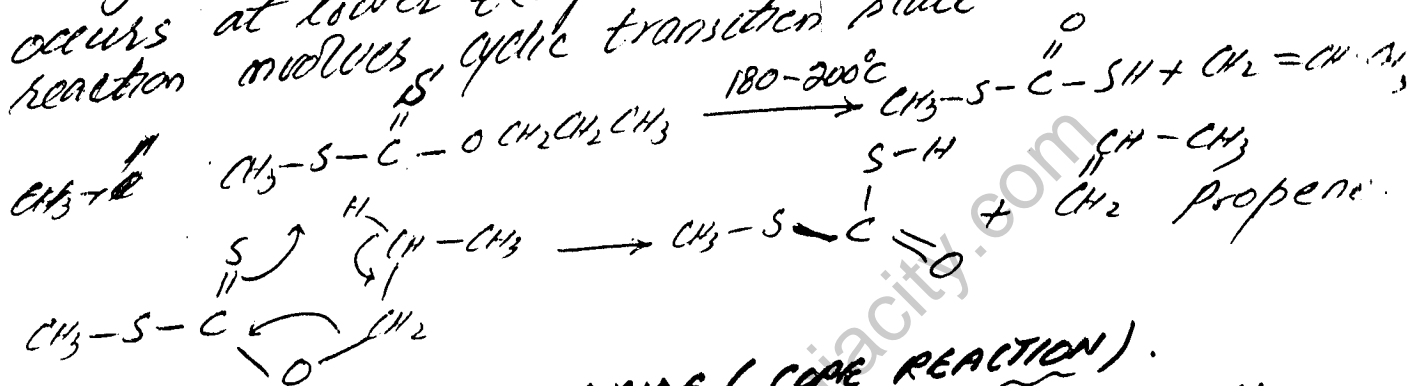 occurs at lower
reaction involves cyclic transition state
S
CH3-S-C-O CH2CH2CH3 180-200°C CH3-S-C-SH + CH2=CH-CH3
O
CH3-C
S H S-H CH-CH3
CH-CH3 CH3-S-C=O + CH2 Propene.
CH3-S-C CH2
O
(COPE REACTION).
jacity.com